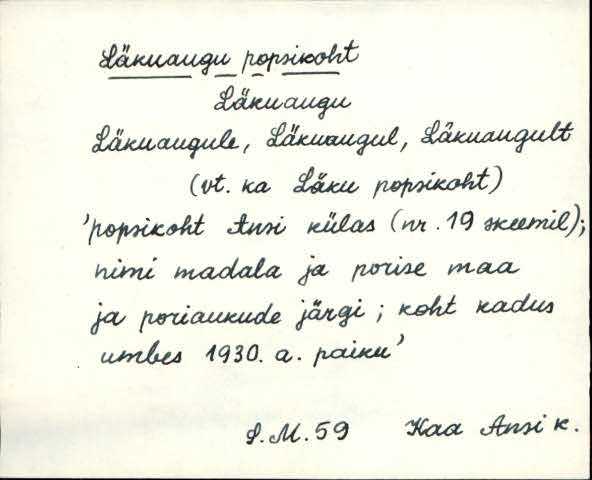 Läkuaugu popsikoht
Läkuaugu
Läkuaugule, Läkuaugul, Läkuaugult
(vt. ka Läku popsikoht)
'popsikoht Ansi külas (nr. 19 skeemil);
nimi madala ja porise maa
ja poriaukude järgi; koht kadus
umbes 1930. a. paiku'
S. M. 59 Kaa Ansi k.